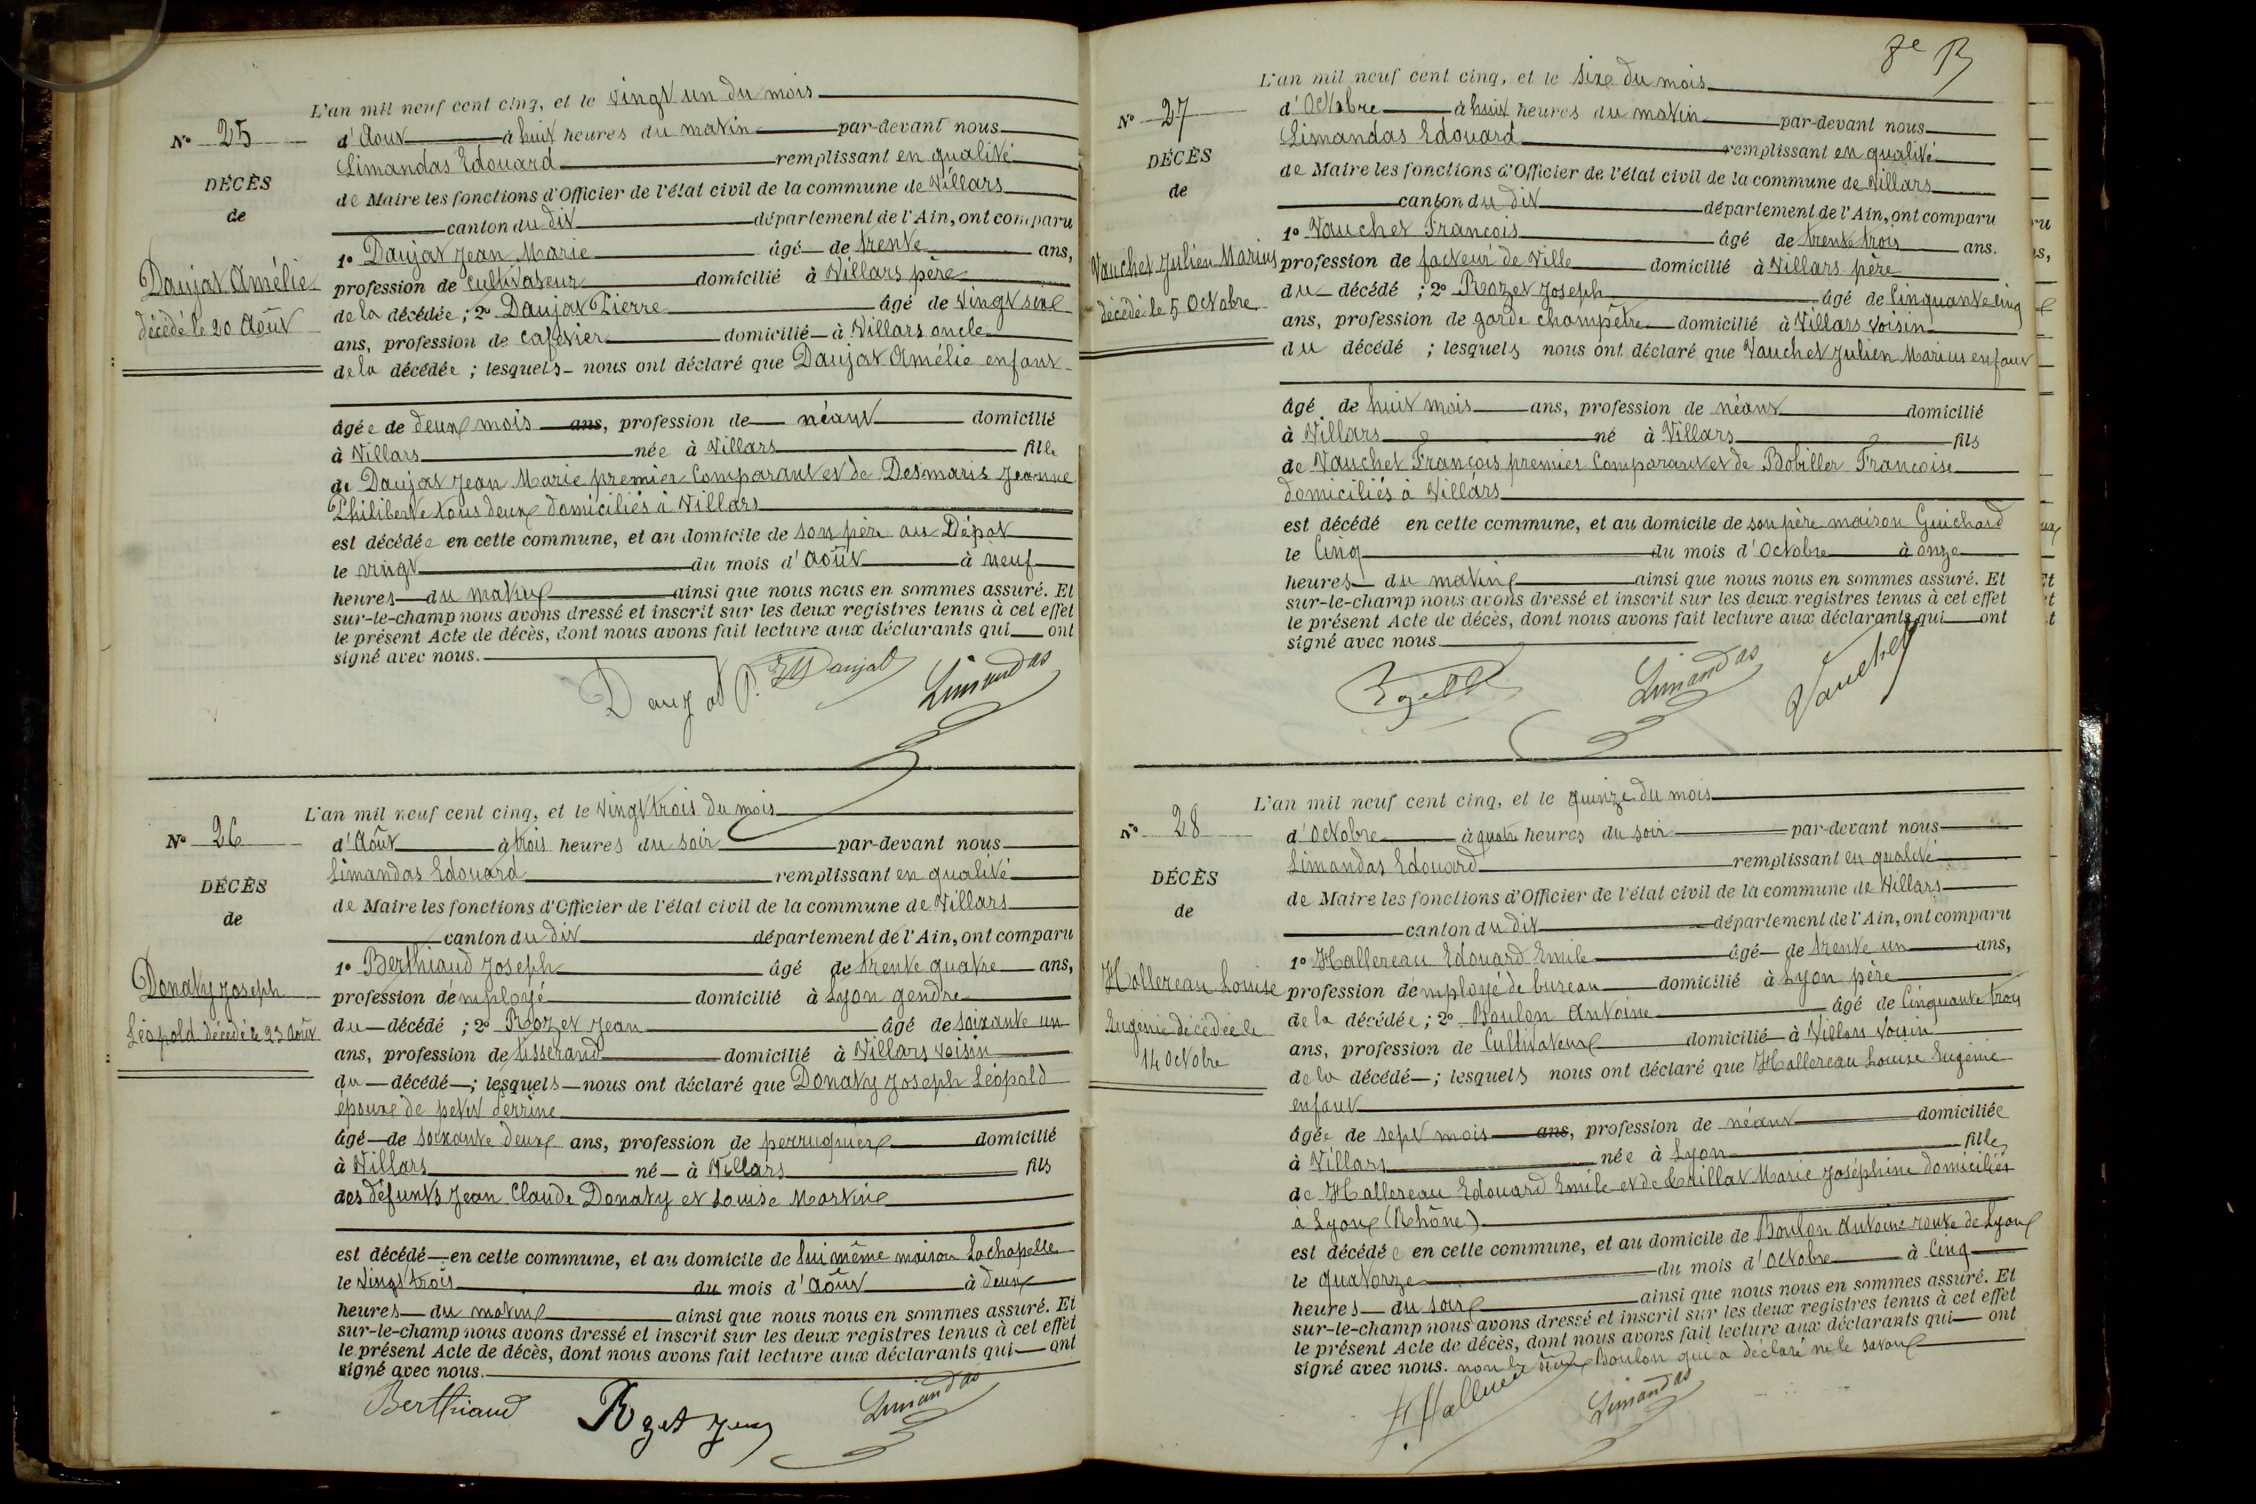 L'an mil neuf cent cinq, et le vingt un du mois
N° 25
d'Aout à huit heures du matin par-devant nous
Limandas Edouard remplissant en qualité
DÉCÈS
de Maire les fonctions d'Officier de l'état civil de la commune de Villars
de
canton du dit département de l'Ain, ont comparu
1° Daujat Jean Marie âgé de trente ans,
Daujat Amélie
profession de cultivateur domicilié à Villars père
décédé le 20 Août
de la décédée ; 2° Daujat Pierre âgé de vingt six
ans, profession de cafetier domicilié à Villars oncle
de la décédée ; lesquels nous ont déclaré que Daujat Amélie enfant
âgée de deux mois ans, profession de néant domicilié
à Villars née à Villars fille
de Daujat Jean Marie premier Comparant et de Desmaris Jeanne
Philiberte tous deux domiciliés à Villars
est décédée en cette commune, et au domicile de son père au Dépot
le vingt du mois d'Août à neuf
heures du matin ainsi que nous nous en sommes assuré. Et
sur-le-champ nous avons dressé et inscrit sur les deux registres tenus à cet effet
le présent Acte de décès, dont nous avons fait lecture aux déclarants qui ont
signé avec nous.
Daujat P. JM Daujat Limandas
L'an mil neuf cent cinq, et le vingt trois du mois
N° 26
d'Août à trois heures du soir par-devant nous
Limandas Edouard remplissant en qualité
DÉCÈS
de Maire les fonctions d'Officier de l'état civil de la commune de Villars
de
canton du dit département de l'Ain, ont comparu
1° Berthiaud Joseph âgé de trente quatre ans,
Donaty Joseph
profession d'employé domicilié à Lyon gendre
Léopold décédé le 23 Août
du décédé ; 2° Rozet Jean âgé de soixante un
ans, profession de tisserand domicilié à Villars voisin
du décédé ; lesquels nous ont déclaré que Donaty Joseph Léopold
époux de petit Perrine
âgé de soixante deux ans, profession de perruquier domicilié
à Villars né à Villars fils
des défunts Jean Claude Donaty et Louise Martin
est décédé en cette commune, et au domicile de lui même maison Lachapelle
le vingt trois du mois d'Août à deux
heures du matin ainsi que nous nous en sommes assuré. Et
sur-le-champ nous avons dressé et inscrit sur les deux registres tenus à cet effet
le présent Acte de décès, dont nous avons fait lecture aux déclarants qui ont
signé avec nous.
Berthiaud Rozet Jean Limandas
L'an mil neuf cent cinq, et le six du mois
N° 27
d'Octobre à huit heures du matin par-devant nous
Limandas Edouard remplissant en qualité
DÉCÈS
de Maire les fonctions d'Officier de l'état civil de la commune de Villars
de
canton du dit département de l'Ain, ont comparu
1° Vauchet François âgé de trente trois ans.
Vauchet Julien Marius
profession de facteur de Ville domicilié à Villars père
décédé le 5 Octobre
du décédé ; 2° Rozet Joseph âgé de Cinquante cinq
ans, profession de garde champêtre domicilié à Villars voisin
du décédé ; lesquels nous ont déclaré que Vauchet Julien Marius enfant
âgé de huit mois ans, profession de néant domicilié
à Villars né à Villars fils
de Vauchet François premier Comparant et de Bobillet Françoise
domiciliés à Villars
est décédé en cette commune, et au domicile de son père maison Guichard
le Cinq du mois d'Octobre à onze
heures du matin ainsi que nous nous en sommes assuré. Et
sur-le-champ nous avons dressé et inscrit sur les deux registres tenus à cet effet
le présent Acte de décès, dont nous avons fait lecture aux déclarants qui ont
signé avec nous
Rozet Limandas Vauchet
L'an mil neuf cent cinq, et le quinze du mois
N° 28
d'Octobre à quatre heures du soir par-devant nous
Limandas Edouard remplissant en qualité
DÉCÈS
de Maire les fonctions d'Officier de l'état civil de la commune de Villars
de
canton du dit département de l'Ain, ont comparu
1° Hallereau Edouard Emile âgé de trente un ans,
Hallereau Louise
profession d'employé de bureau domicilié à Lyon père
Eugénie décédée le
de la décédée ; 2° Boulon Antoine âgé de Cinquante trois
14 Octobre
ans, profession de Cultivateur domicilié à Villars voisin
de la décédé ; lesquels nous ont déclaré que Hallereau Louise Eugénie
enfant
âgée de sept mois ans, profession de néant domiciliée
à Villars née à Lyon fille
de Hallereau Edouard Emile et de Crillat Marie Joséphine domiciliés
à Lyon (Rhône)
est décédée en cette commune, et au domicile de Boulon Antoine route de Lyon
le quatorze du mois d'Octobre à Cinq
heures du soir ainsi que nous nous en sommes assuré. Et
sur-le-champ nous avons dressé et inscrit sur les deux registres tenus à cet effet
le présent Acte de décès, dont nous avons fait lecture aux déclarants qui ont
signé avec nous. non le sieur Boulon qui a déclaré ne le savoir
Limandas